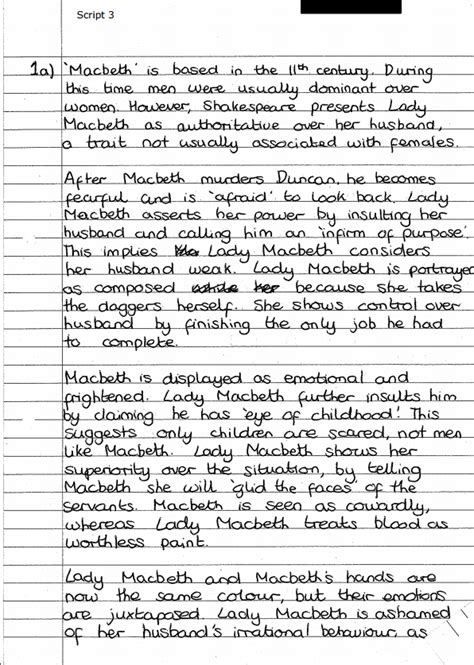 Script 3
1a) 'Macbeth' is based in the 11th century. During
this time men were usually dominant over
women. However, Shakespeare presents Lady
Macbeth as authoritative over her husband,
a trait not usually associated with females.
After Macbeth murders Duncan, he becomes
fearful and is 'afraid' to look back. Lady
Macbeth asserts her power by insulting her
husband and calling him an 'infirm of purpose'.
This implies Lady Macbeth considers
her husband weak. Lady Macbeth is portrayed
as composed because she takes
the daggers herself. She shows control over
husband by finishing the only job he had
to complete.
Macbeth is displayed as emotional and
frightened. Lady Macbeth further insults him
by claiming he has 'eye of childhood'. This
suggests only children are scared, not men
like Macbeth. Lady Macbeth shows her
superiority over the situation, by telling
Macbeth she will 'glid the faces' of the
servants. Macbeth is seen as cowardly,
whereas Lady Macbeth treats blood as
worthless paint.
Lady Macbeth and Macbeth's hands are
now the same colour, but their emotions
are juxtaposed. Lady Macbeth is ashamed
of her husband's irrational behaviour, as